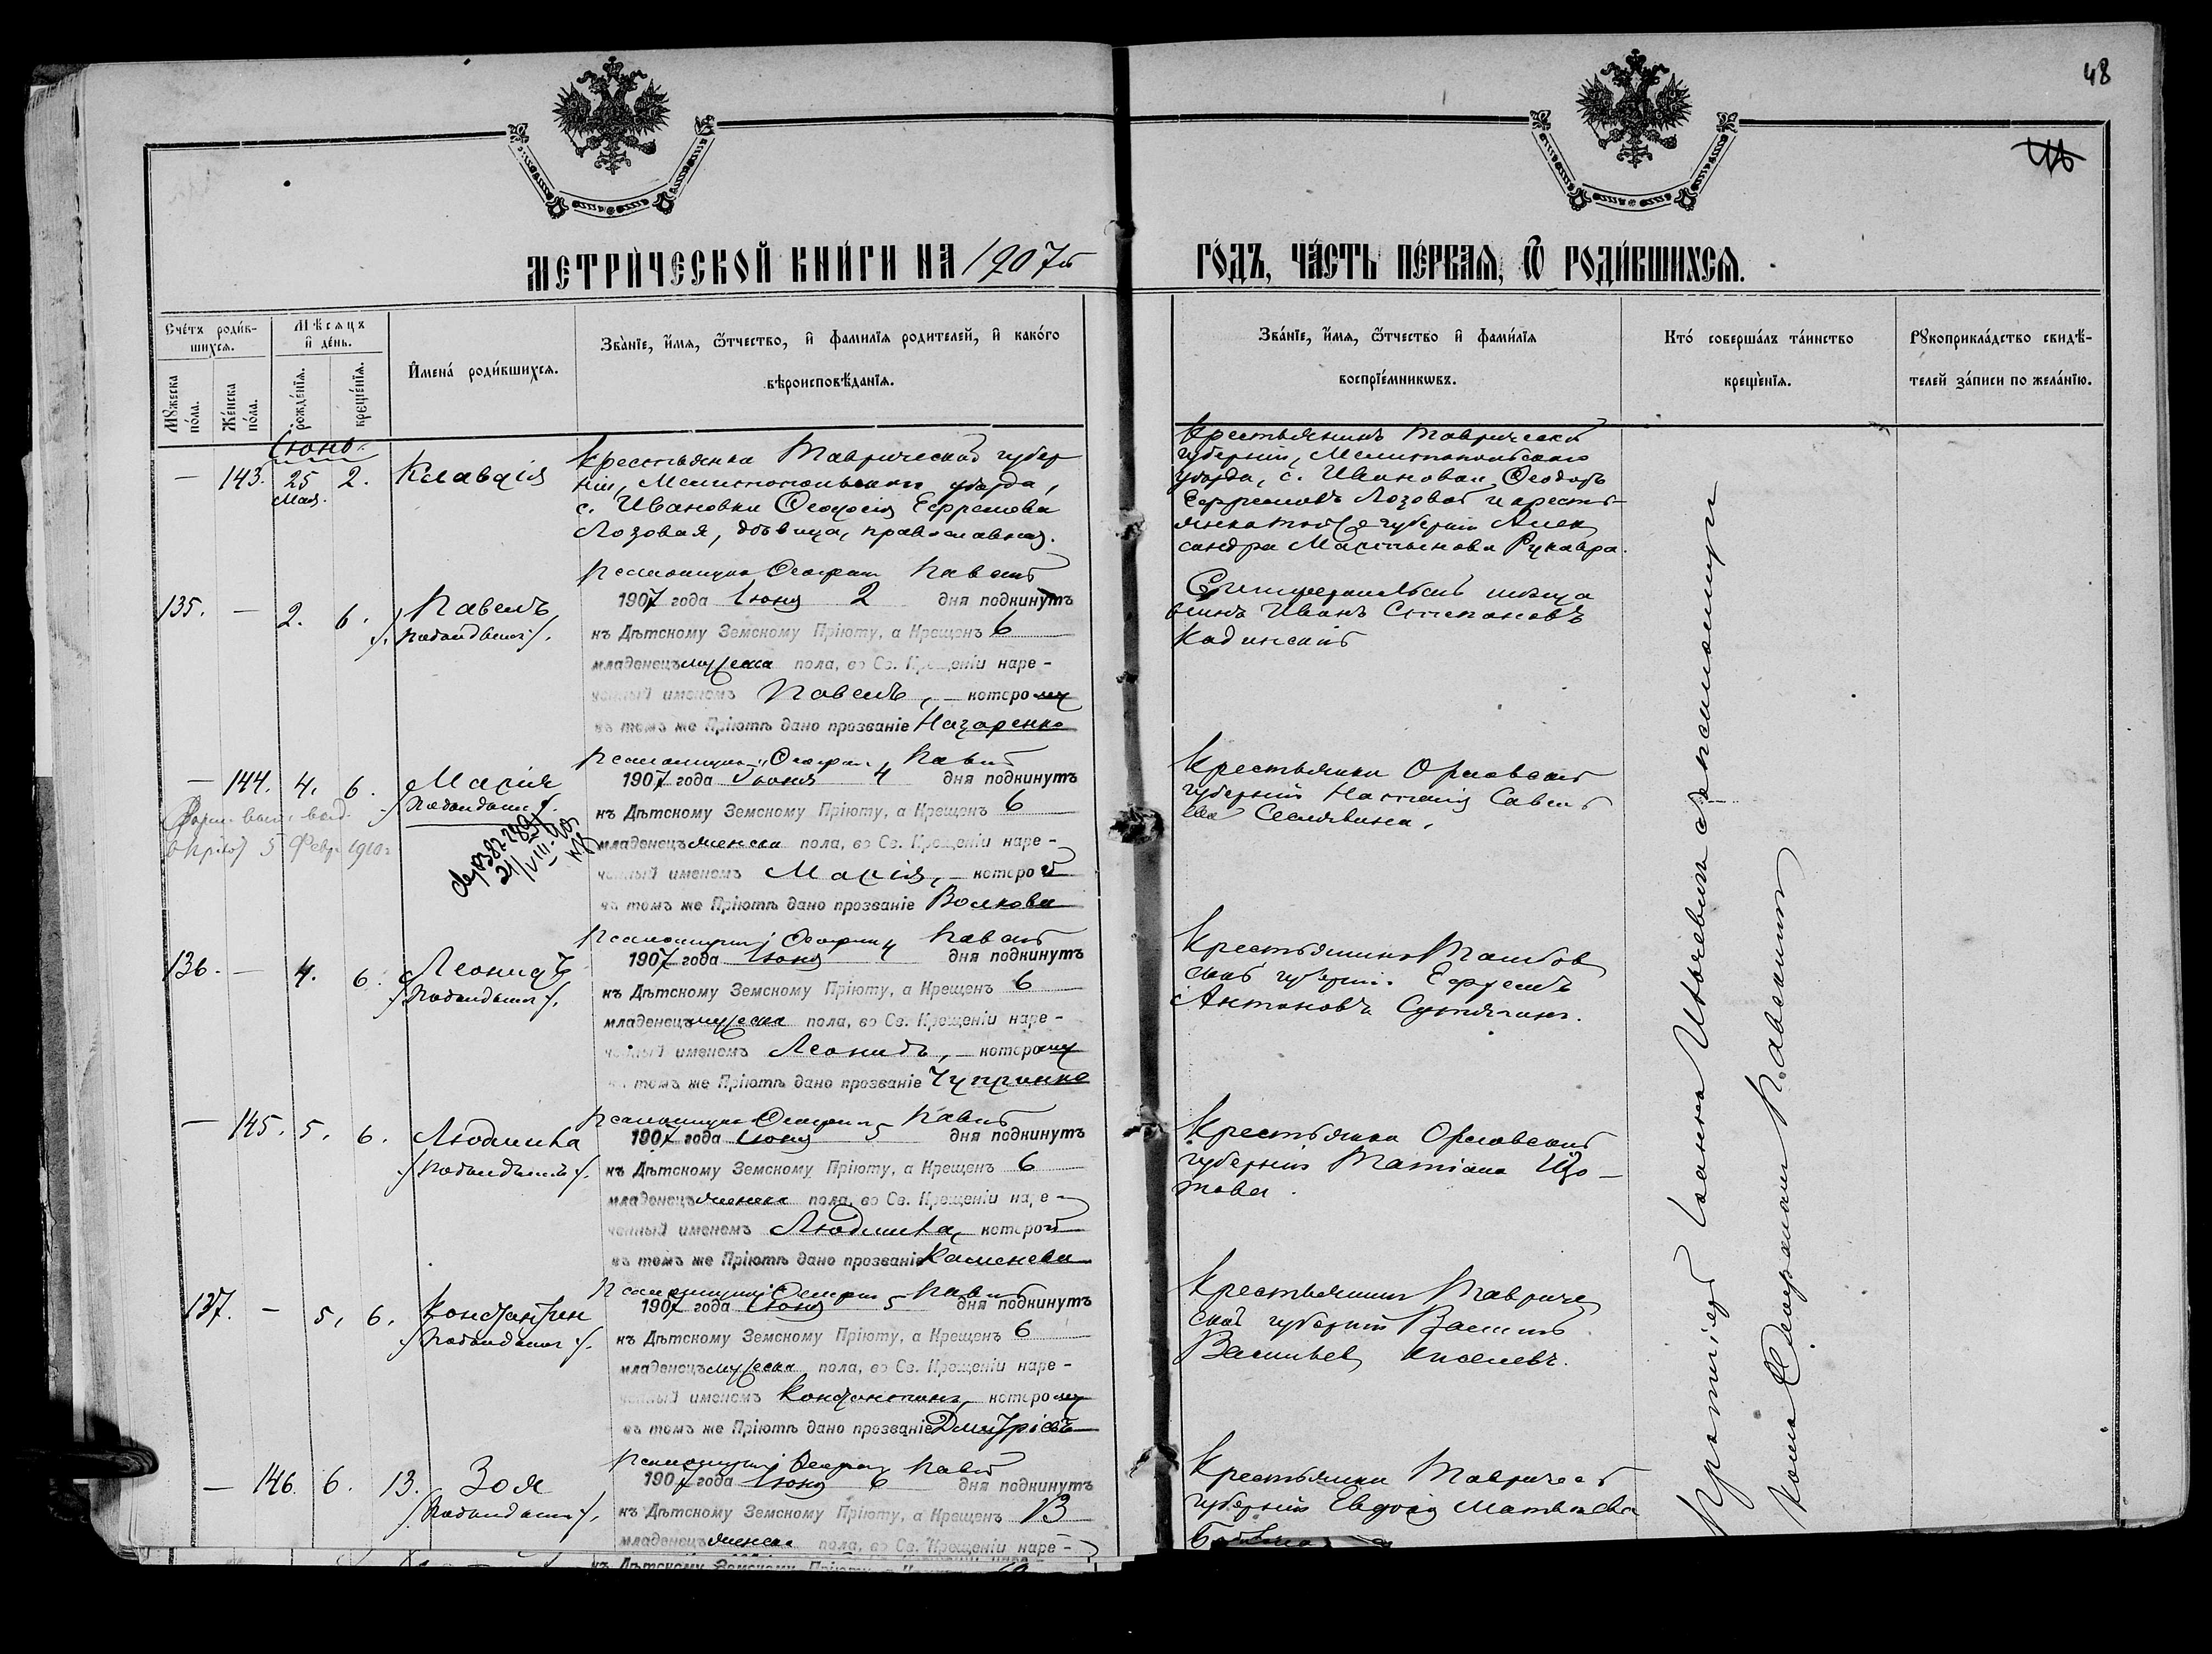 48
МЕТРИ́ЧЕСКОЙ КНИ́ГИ НА 1907й
ГО́ДЪ, ЧА́СТЬ ПЕ́РВАЯ, Ѿ РОДИ́ВШИХСЯ.
Сче́тъ роди́в-
шихся.
Мѣ́сяцъ
и де́нь.
Мꙋ́жеска
по́ла.
Же́нска
по́ла.
рожде́нїя.
креще́нїя.
Имена́ роди́вшихся.
Зва́нїе, и́мя, ѻ́тчество, и фами́лїя родителей, и како́го
вѣроисповѣ́данїя.
Зва́нїе, и́мя, ѻ́тчество и фами́лїя
воспрїе́мникѡвъ.
Кто́ соверша́лъ та́инство
креще́нїя.
Рꙋкоприкла́дство свидѣ́-
телей за́писи по жела́нїю.
Іюнь
— 143. 25 2. Клавдія
Мая.
Крестьянка Таврической губер
ніи, Мелитопольскаго уѣзда,
с. Ивановки Ѳеодосія Ефремова
Лозовая, дѣвица, православная.
Крестьянинъ Таврической
губерніи, Мелитопольскаго
уѣзда, с. Ивановки Ѳеодоръ
Ефремовъ Лозовой и кресть-
янка той же губерніи Алек
сандра Мартынова Рукавра.
135. — 2. 6. Павелъ
1907 года Іюня 2 дня подкинутъ
къ Дѣтскому Земскому Пріюту, а Крещенъ 6
младенецъ мужеска пола, во Св. Крещеніи наре-
ченный именемъ Павелъ, — которому
въ томъ же Пріютѣ дано прозваніе Назаренко
Симферопольскій мѣща
нинъ Иванъ Степановъ
Кадинскій
— 144. 4. 6. Марія
в пріют 5 Февр 1910 г
1907 года Іюня 4 дня подкинутъ
къ Дѣтскому Земскому Пріюту, а Крещенъ 6
младенецъ женска пола, во Св. Крещеніи наре-
ченный именемъ Марія, — которой
въ томъ же Пріютѣ дано прозваніе Волкова
Крестьянка Орловской
губерніи
136. — 4. 6. Леонидъ
1907 года Іюня 4 дня подкинутъ
къ Дѣтскому Земскому Пріюту, а Крещенъ 6
младенецъ мужеска пола, во Св. Крещеніи наре-
ченный именемъ Леонидъ, — которому
въ томъ же Пріютѣ дано прозваніе Чупринко
Крестьянинъ Тамбов
ской губерніи Ефремъ
Антоновъ
— 145. 5. 6. Людмила
1907 года Іюня 5 дня подкинутъ
къ Дѣтскому Земскому Пріюту, а Крещенъ 6
младенецъ женска пола, во Св. Крещеніи наре-
ченный именемъ Людмила, которой
въ томъ же Пріютѣ дано прозваніе Каменева
Крестьянка Орловской
губерніи Татіана Що-
това.
137. — 5. 6. Константин
1907 года Іюня 5 дня подкинутъ
къ Дѣтскому Земскому Пріюту, а Крещенъ 6
младенецъ мужеска пола, во Св. Крещеніи наре-
ченный именемъ Константинъ, которому
въ томъ же Пріютѣ дано прозваніе Дмитріевъ
Крестьянинъ Тавриче
ской губерніи Василій
Васильев Киселевъ.
— 146. 6. 13. Зоя
1907 года Іюня 6 дня подкинутъ
къ Дѣтскому Земскому Пріюту, а Крещенъ 13
младенецъ женска пола, во Св. Крещеніи наре-
Крестьянка Тавричес
губерніи Евдокія Матвѣева
Протоіерей Іоаннъ с псаломщи
комъ Ѳеофаномъ Павскимъ